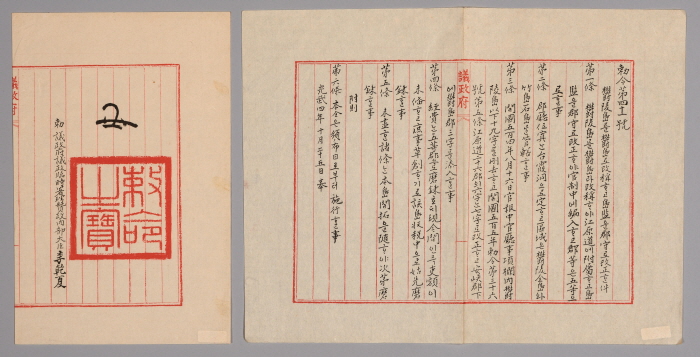 勅令第四十一號
欝陵島를欝島로改稱ᄒᆞ고島監을郡守로改正ᄒᆞᆫ件
第一條 欝陵島를欝島라改稱ᄒᆞ야江原道에附屬ᄒᆞ고島
監을郡守로改正ᄒᆞ야官制中에編入ᄒᆞ고郡等은五等으로
ᄒᆞᆯ事
第二條 郡廳位寘ᄂᆞᆫ台霞洞으로定ᄒᆞ고區域은欝陵全島와
竹島石島를管轄ᄒᆞᆯ事
第三條 開國五百四年八月十六日官報中官廳事項欄內欝
陵島以下十九字를刪去ᄒᆞ고開國五百五年勅令第三十六
號第五條江原道二十六郡의六字ᄂᆞᆫ七字로改正ᄒᆞ고安峽郡下
에欝島郡三字를添入ᄒᆞᆯ事
議政府
第四條 經費ᄂᆞᆫ五等郡으로磨鍊호ᄃᆡ現今間인즉吏額이
未備ᄒᆞ고庶事草創ᄒᆞ기로該島收稅中으로姑先磨
鍊ᄒᆞᆯ事
第五條 未盡ᄒᆞᆫ諸條ᄂᆞᆫ本島開拓을隨ᄒᆞ야次第磨
鍊ᄒᆞᆯ事
附則
第六條 本令은頒布日로븟터施行ᄒᆞᆯ事
光武四年十月二十五日奉
勅 議政府議政臨時署理贊政內部大臣李乾夏
勅命之寶
議政府